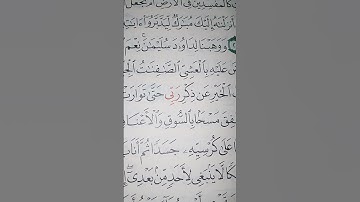 كالمفسدين في الأرض أم نجعل
أنزلناه إليك مبارك ليدبروا ءايـ
ووهبنا لداوود سليمان نعم
عليه بالعشي الصافنات الجـ
الخير عن ذكر ربي حتى توارت
فق مسحا بالسوق والأعنا
على كرسيه جسدا ثم أناب
كا لا ينبغي لأحد من بعدي